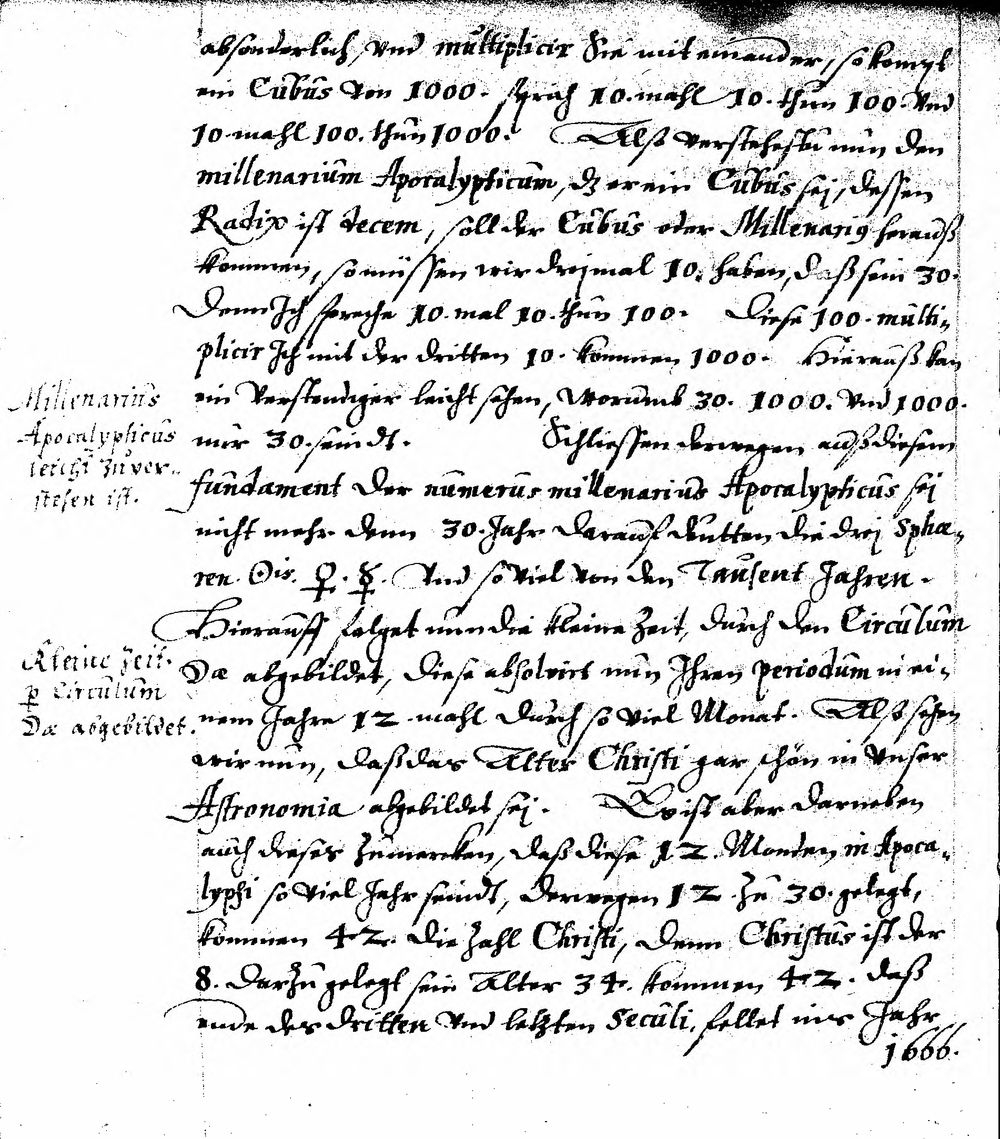 absonderlich, vnd multiplicir Sie mit einander, so kompt
ein Cubus von 1000. sprich 10. mahl 10. thun 100. vnd
10. mahl 100. thun 1000. Alß verstehestu nun den
millenarium Apocalypticum, dz er ein Cubus sej, dessen
Radix ist decem, soll der Cubus oder Millenarius herauß
kommen, so müssen wir dreimal 10. haben, daß sein 30.
Denn Ich spreche 10. mal 10. thun 100. Diese 100. multi-
plicir Ich mit der dritten 10. kommen 1000. Hierauß kan
Millenarius
Apocalypticus
leicht zu ver-
stehen ist.
ein Verstendiger leicht sehen, Worumb 30. 1000. vnd 1000.
nur 30. seindt. Schliessen derwegen auß diesem
fundament der numerus millenarius Apocalypticus sej
nicht mehr denn 30. Jahr darauff deutten die drej Sphæ-
ren ☉is. ♀. ☿. Vnd so viel von den Tausent Jahren.
Hierauff folget nun die kleine Zeit, durch den Circulum
Kleine Zeit.
p Circulum
☽æ abgebildet.
☽æ abgebildet, diese absolvirt nun Ihren periodum in ei-
nem Jahre 12. mahl durch so viel Monat. Alß sehen
wir nun, daß das Alter Christi gar schön in vnser
Astronomia abgebildet sej. Es ist aber darneben
auch dieses zumercken, daß diese 12. Monden in Apoca-
lypsi so viel Jahr seindt, derwegen 12 zu 30. gelegt,
kommen 42. die Zahl Christi, denn Christus ist der
8. darzu gelegt sein Alter 34. kommen 42. daß
ende des dritten vnd letzten Seculi, fellet ins Jahr
1666.